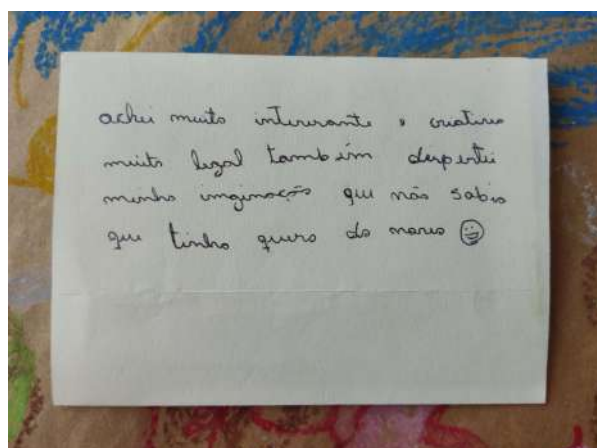 achei muito interesante e criativo
muito legal também despertei
minha imginação que não sabia
que tinha quero do novo 😃